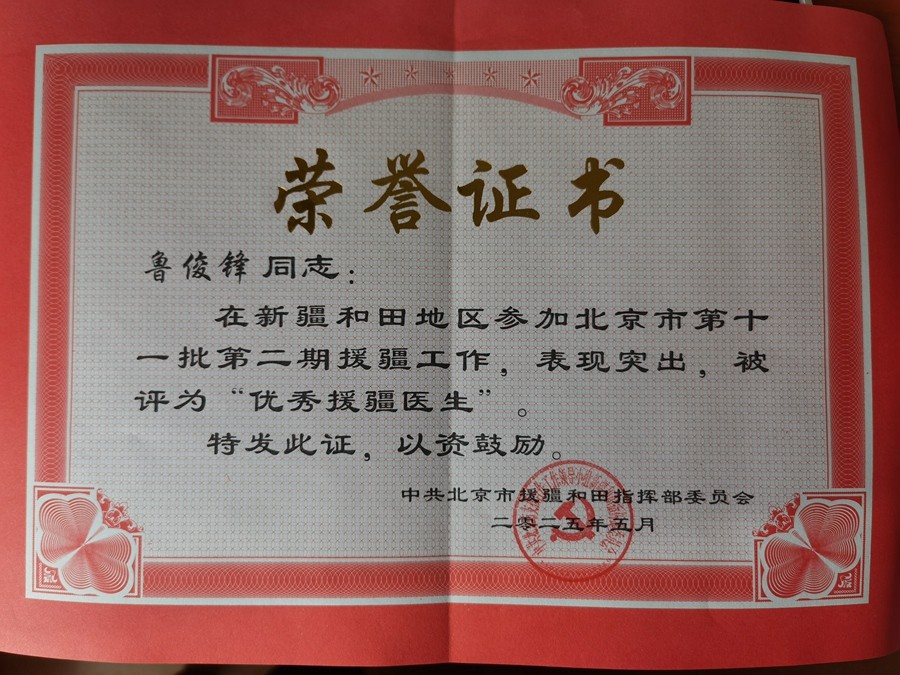 荣誉证书
鲁俊锋同志：
在新疆和田地区参加北京市第十
一批第二期援疆工作，表现突出，被
评为“优秀援疆医生”。
特发此证，以资鼓励。
中共北京市援疆和田指挥部委员会
二零二五年五月